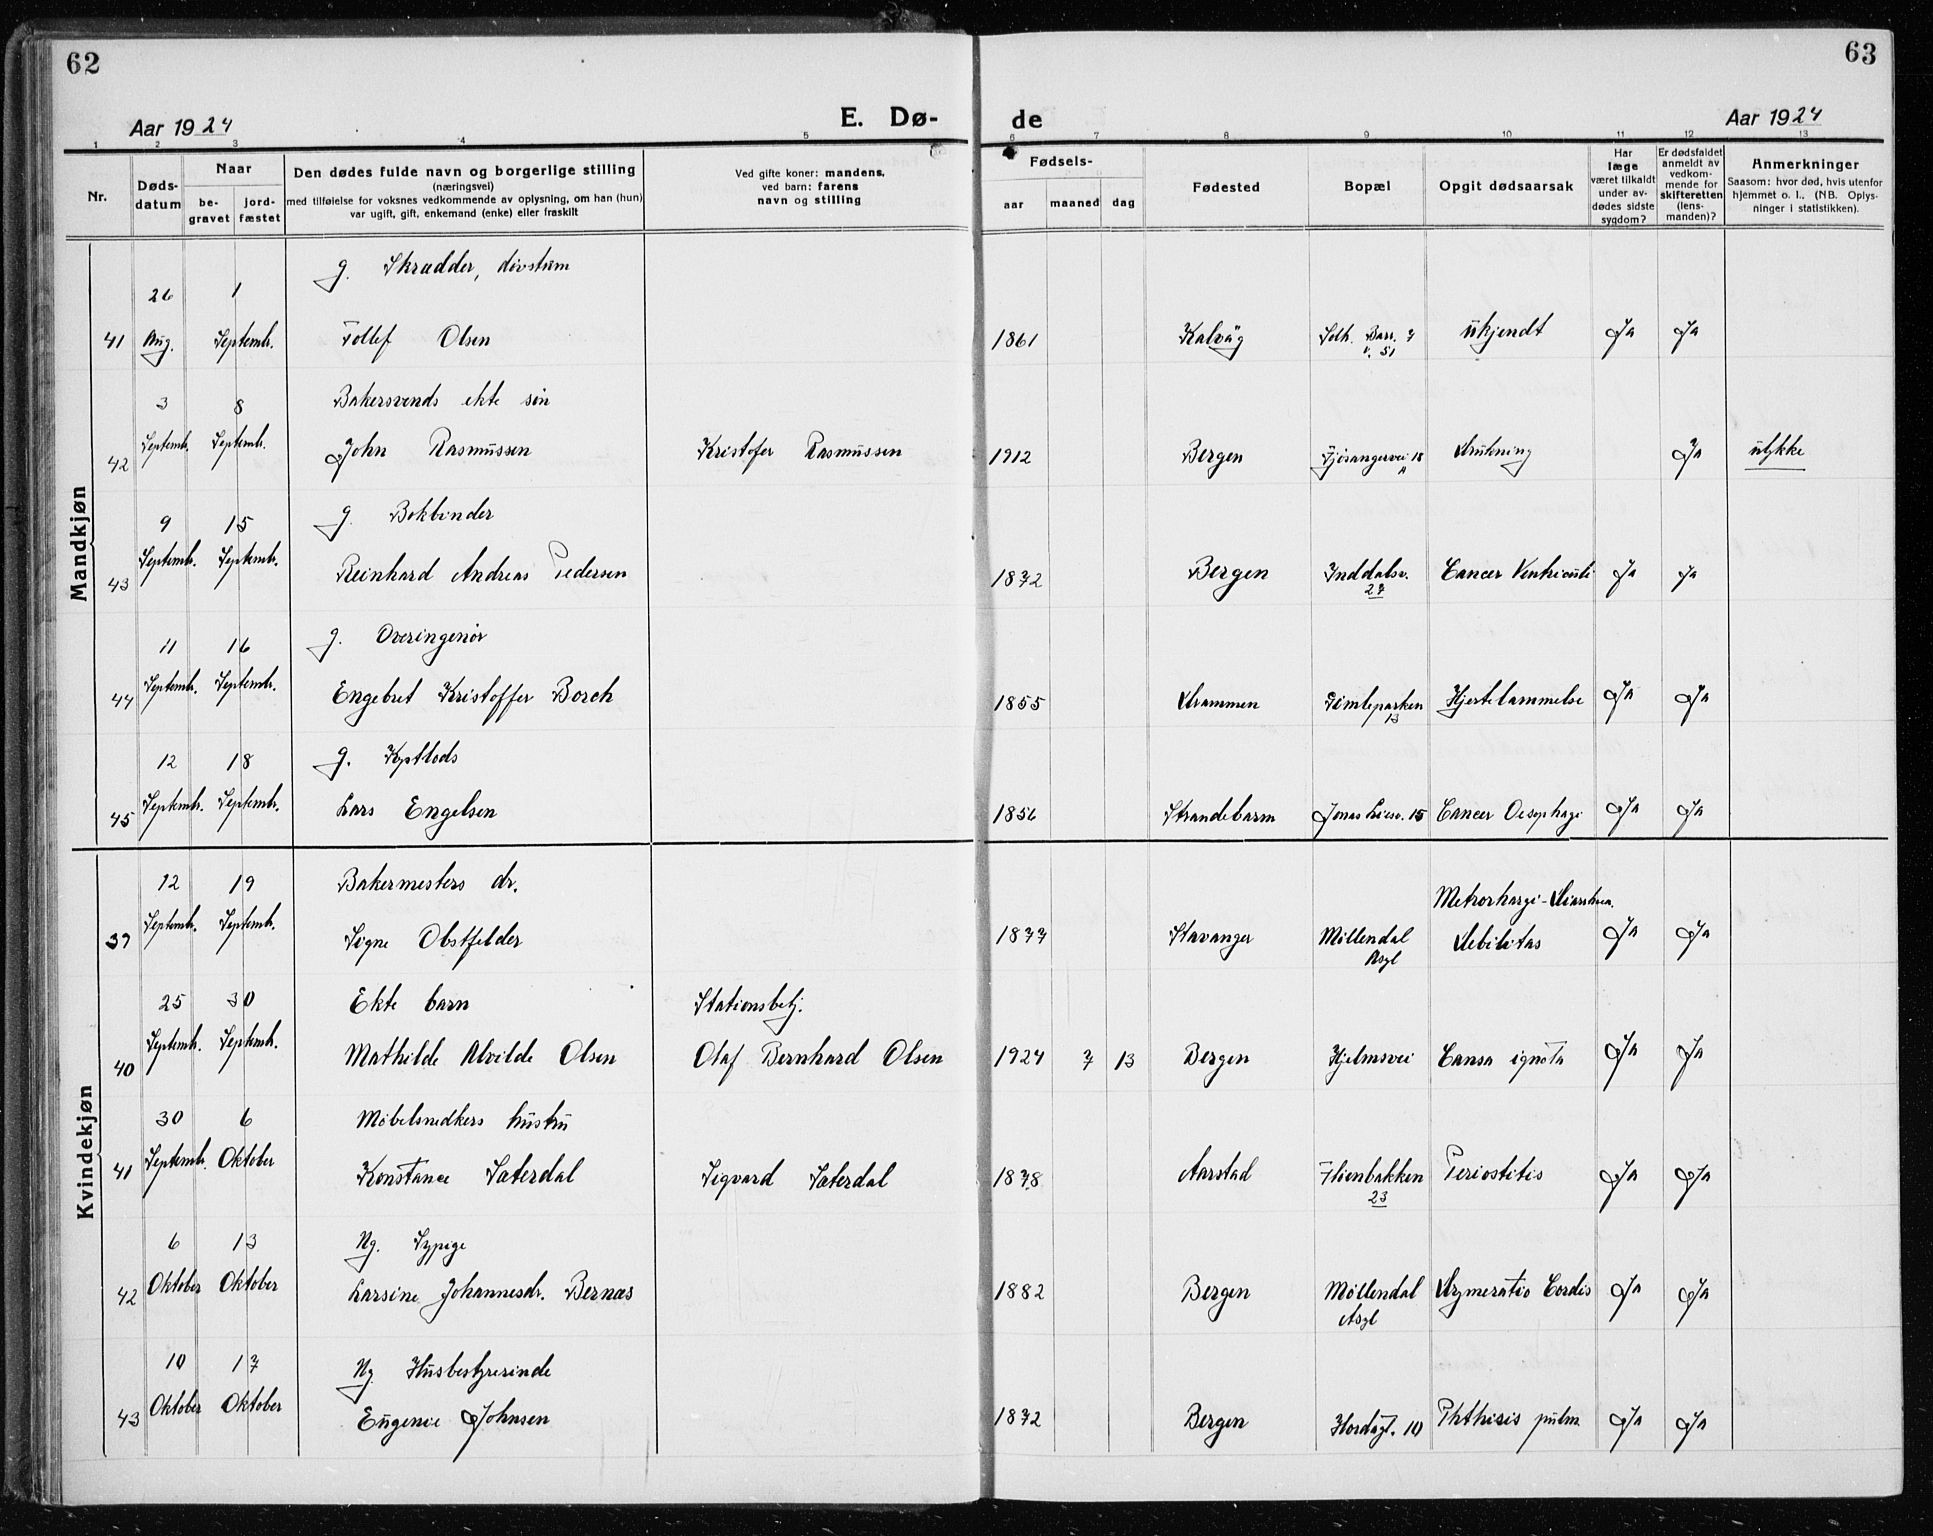 62
Aar 1924
E. Dø-
1 2 3 4 5
Nr.
Døds-
datum
Naar
be-
gravet
jord-
fæstet
Den dødes fulde navn og borgerlige stilling
(næringsvei)
med tilføielse for voksnes vedkommende av oplysning, om han (hun)
var ugift, gift, enkemand (enke) eller fraskilt
Ved gifte koner: mandens,
ved barn: farens
navn og stilling
63
de
Aar 1924
6 7 8 9 10 11 12 13
Fødsels-
aar maaned dag
Fødested
Bopæl
Opgit dødsaarsak
Har
læge
været tilkaldt
under av-
dødes sidste
sygdom?
Er dødsfaldet
anmeldt av
vedkom-
mende for
skifteretten
(lens-
manden)?
Anmerkninger
Saasom: hvor død, hvis utenfor
hjemmet o. l.. (NB. Oplys-
ninger i statistikken).
Mandkjøn
26 1 g. Skrædder, døvstum
41 Aug. Septemb. Tollef Olsen 1861 Kalvåg Solh. Barr. 7 ukjendt Ja Ja
v. 51
3 8 Bakersvends ekte søn
42 Septemb. Septemb. John Rasmussen Kristofer Rasmussen 1912 Bergen Fjøsangervei 18 Drukning Ja ulykke
A
9 15 g. Bokbinder
43 Septemb. Septemb. Reinhard Andreas Pedersen 1872 Bergen Inddalsv. Cancer Ventriculi Ja Ja
27
11 16 g. Overingeniør
44 Septemb. Septemb. Engebret Kristoffer Borch 1855 Drammen Gimleparken Hjertelammelse Ja Ja
13
12 18 g. Kystlods
45 Septemb. Septemb. Lars Engelsen 1856 Strandebarm Jonas Liesv. 15 Cancer Oesophagi Ja Ja
Kvindekjøn
12 19 Bakermesters dr. Metrorhargi-Diarrhoea.
39 Septemb. Septemb. Signe Obstfelder 1877 Stavanger Møllendal Debilitas Ja Ja
Asyl
25 30 Ekte barn Stationsbetj.
40 Septemb. Septemb. Mathilde Alvilde Olsen Olaf Bernhard Olsen 1924 7 13 Bergen Hjelmsvei Causa ignota Ja Ja
30 6 Møbelsnedkers hustru
41 Septemb. Oktober Konstance Sæterdal Sigvard Sæterdal 1878 Aarstad Fløenbakken Periostitis Ja Ja
23
6 13 Ug. Sypige
42 Oktober Oktober Larsine Johannesdr. Bernæs 1882 Bergen Møllendal Cordis Ja Ja
Asyl
10 17 Ug. Husbestyrerinde
43 Oktober Oktober Eugenie Johnsen 1872 Bergen Hordagt. 10 Phthisis pulm Ja Ja